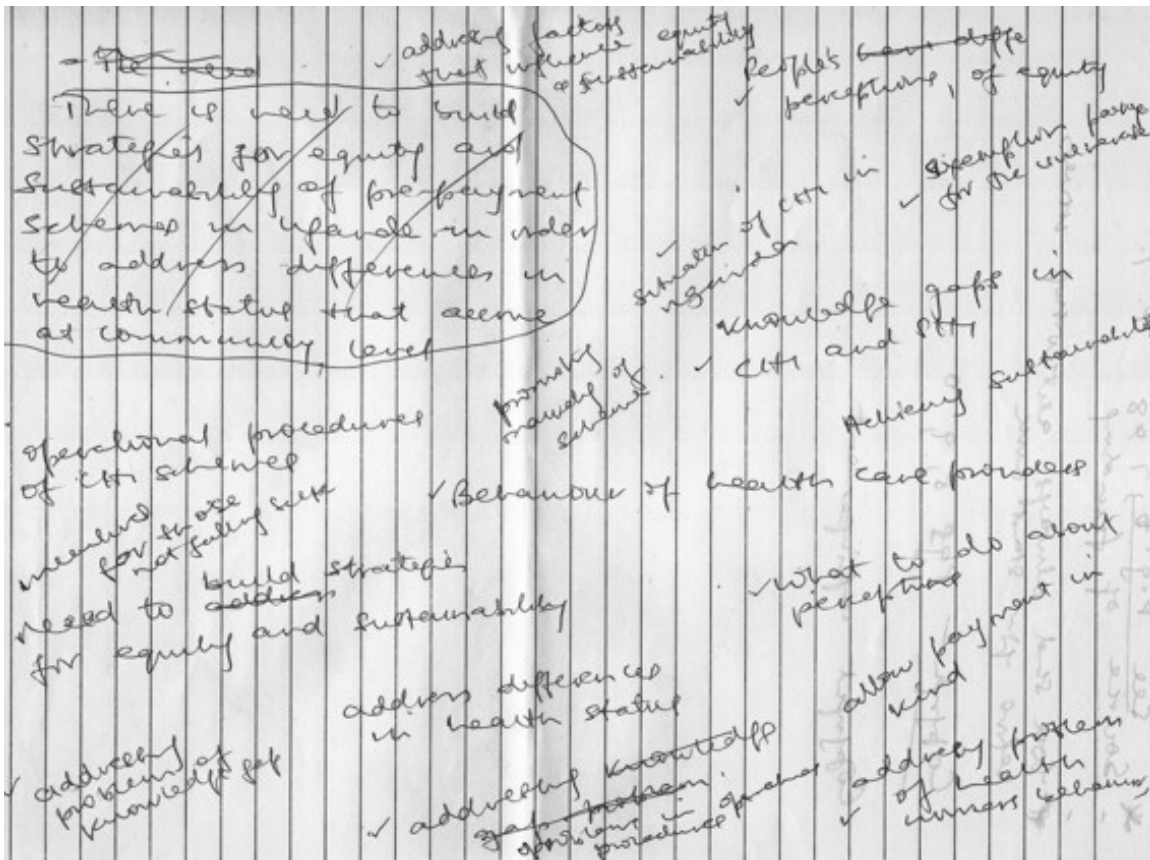 - The need
There is need to build
strategies for equity and
sustainability of pre-payment
schemes in Uganda in order
to address differences in
health status that accrue
at community level
✓ addressing factors
that influence equity
& sustainability
✓ People's have diffe
perceptions, of equity
✓ exemption
for the vulnerable
✓ situation of CHI in
Uganda
Knowledge gaps in
✓ CHI and SHI
promoting
of
Achieving sustainability
operational procedures
of CHI schemes
for those
not falling sick
✓ Behaviour of health care providers
need to build strategies
address
for equity and sustainability
✓ what to do about
perceptions
address differences
in health status
allow payment in
kind
✓ addressing
problem of
knowledge gap
✓ addressing knowledge
gap problem
problems in operational
procedures
✓ addressing problem
of health
workers behaviour